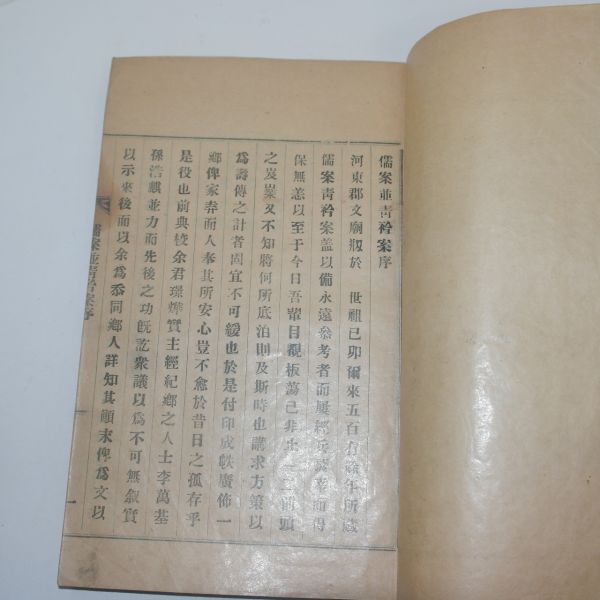 儒案並靑衿案序
河東郡文廟剏於 世祖己卯爾來五百有餘年所藏
儒案靑衿案盖以備永遠參考者而屢經兵燹幸而得
保無恙以至于今日吾輩目覩板蕩已非止一二前頭
之岌嶪又不知將何所底泊則及斯時也講求方策以
爲壽傳之計者固宜不可緩也於是付印成帙廣佈一
鄕俾家莽而人奉其所安心豈不愈於昔日之孤存乎
是役也前典校余君璟燁實主經紀鄕之人士李萬基
孫浩麒並力而先後之功旣訖衆議以爲不可無叙實
以示來後而以余爲忝同鄕人詳知其顚末俾爲文以
儒案並靑衿案序
一